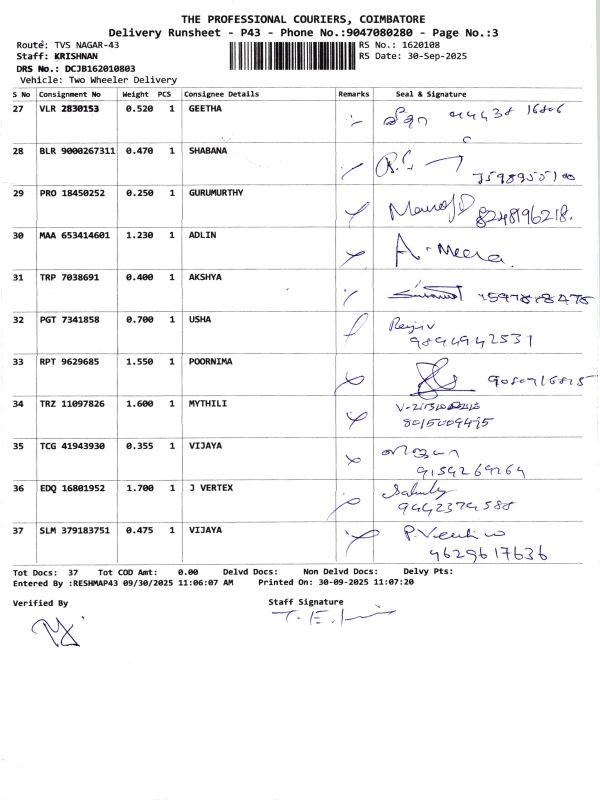 THE PROFESSIONAL COURIERS, COIMBATORE
Delivery Runsheet - P43 - Phone No.:9047080280 - Page No.:3
Route: TVS NAGAR-43 RS No.: 1620108
Staff: KRISHNAN RS Date: 30-Sep-2025
DRS No.: DCJB162010803
Vehicle: Two Wheeler Delivery
S No Consignment No Weight PCS Consignee Details Remarks Seal & Signature
27 VLR 2830153 0.520 1 GEETHA
28 BLR 9000267311 0.470 1 SHABANA
29 PRO 18450252 0.250 1 GURUMURTHY
8248196218.
30 MAA 653414601 1.230 1 ADLIN A. Meera.
31 TRP 7038691 0.400 1 AKSHYA
32 PGT 7341858 0.700 1 USHA
9894942531
33 RPT 9629685 1.550 1 POORNIMA
34 TRZ 11097826 1.600 1 MYTHILI
8015009495
35 TCG 41943930 0.355 1 VIJAYA
9154269264
36 EDQ 16801952 1.700 1 J VERTEX
9442374588
37 SLM 379183751 0.475 1 VIJAYA
9629617636
Tot Docs: 37 Tot COD Amt: 0.00 Delvd Docs: Non Delvd Docs: Delvy Pts:
Entered By :RESHMAP43 09/30/2025 11:06:07 AM Printed On: 30-09-2025 11:07:20
Verified By Staff Signature